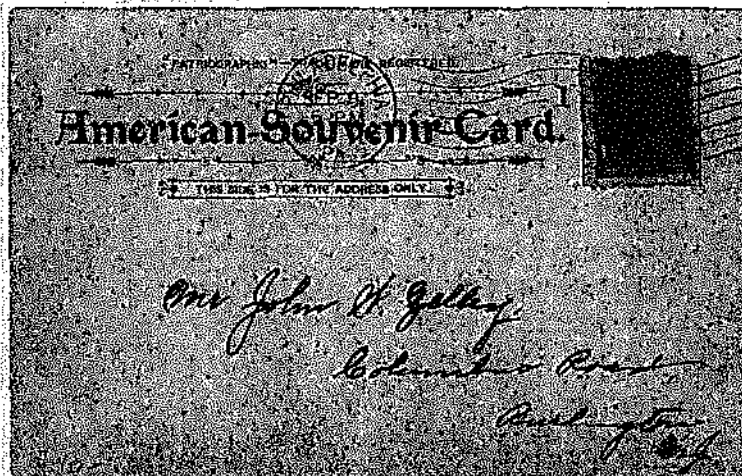 "PATRIOGRAPHIC"—TRADE MARK REGISTERED.
American-Souvenir-Card.
THIS SIDE IS FOR THE ADDRESS ONLY.
Mr John W. Zelley
Columbus Road
Burlington
N.J.